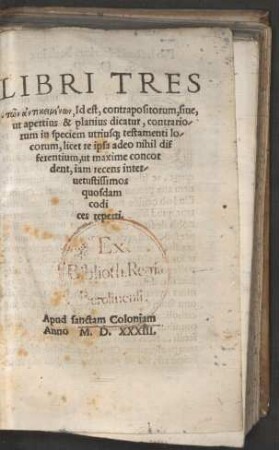 LIBRI TRES
τῶν ἀντικειμένων, Id est, contrapositorum, siue,
ut apertius & planius dicatur, contrario-
rum in speciem utriusq; testamenti lo-
corum, licet re ipsa adeo nihil dif
ferentium, ut maxime concor
dent, iam recens inter
uetustissimos
quosdam
codi
ces reperti.
Ex
Biblioth. Regia
Berolinensi.
Apud sanctam Coloniam
Anno M. D. XXXIII.